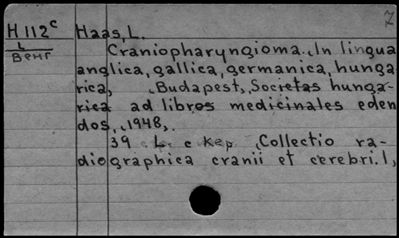 7
H 112c Haas, L.
L
Венг
Craniopharyngioma. In lingua
anglica, gallica, germanica, hunga
rica, Budapest, Socretas hunga-
rica ad libros medicinales eden
dos, 1948,.
39 L. c кар Collectio ra-
diographica cranii et cerebri. 1,